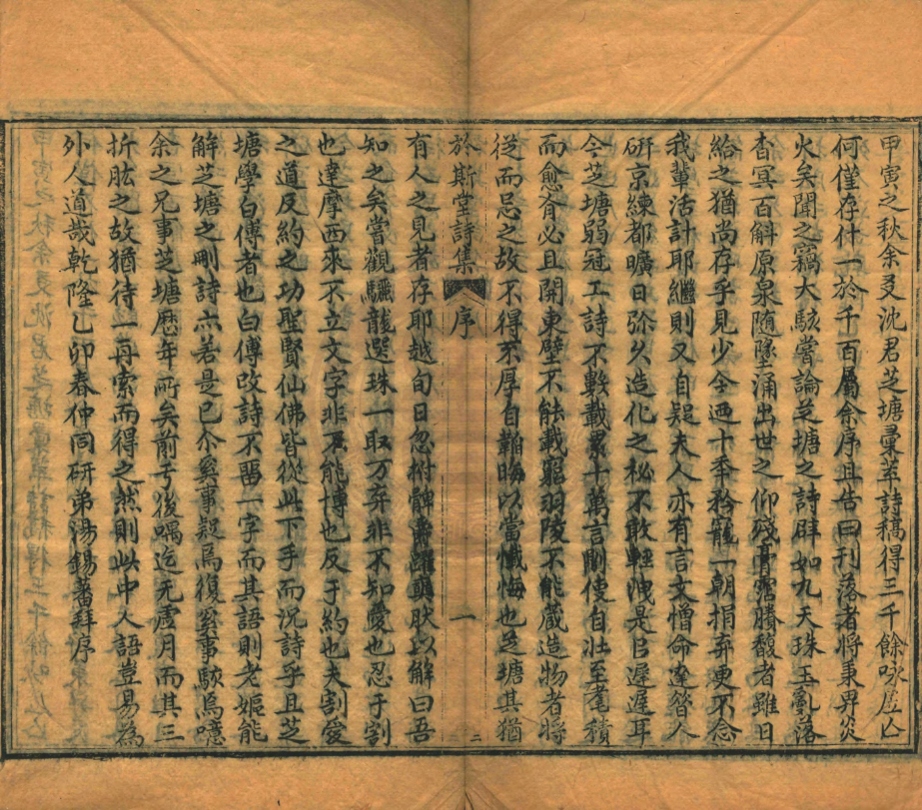 甲寅之秋余友沈君芝塘彚萃詩稿得三千餘咏屋亾
何僅存什一於千百屬余序且告曰刊落者將秉畀炎
火矣聞之竊大駭嘗論芝塘之詩辟如九天珠玉亂落
杳冥百斛原泉随墬涌出世之仰殘膏霑賸馥者雖日
給之猶尚存乎見少今迺十秊矜寵一朝捐弃更不念
我輩活計耶繼則又自疑夫人亦有言文憎命達簪人
研京練都曠日弥久造化之秘不敢輕洩是㠯遲遲耳
今芝塘弱冠工詩不數載累十萬言劘使自壯至耄積
而愈斉必且開東壁不能載罷羽陵不能蔵造物者將
從而忌之故不得不厚自韜晦以當懺悔也芝塘其猶
於斯堂詩集 序 一
有人之見者存耶越旬日忽拊髀雀躍輿肰以解曰吾
知之矣嘗觀驪龍選珠一取万弃非不知愛也忍于割
也達摩西來不立文字非不能博也反于約也夫割愛
之道反約之功聖賢仙佛皆從此下手而況詩乎且芝
塘學白傅者也白傅改詩不畱一字而其語則老嫗能
解芝塘之刪詩亦若是已尒奚事疑焉復奚事駭焉噫
余之兄事芝塘歷年所矣前于後喁迄无虗月而其三
折肱之故猶待一再索而得之然則此中人語豈易為
外人道哉乾隆乙卯春仲同研弟湯錫蕃拜序